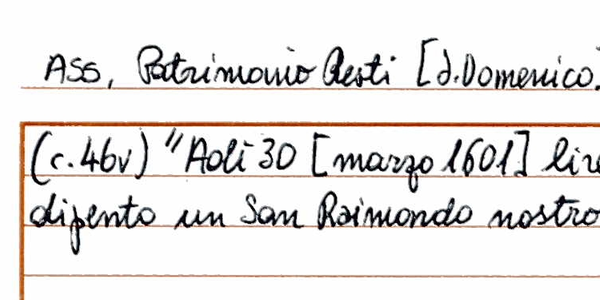 ASS, Patrimonio Resti [S. Domenico.
(c.46v) "Adi 30 [marzo 1601] lire
dipento un San Raimondo nostro